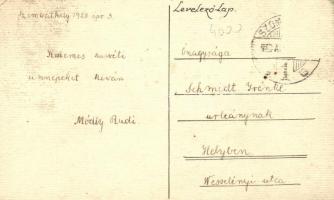 Szombathely 1928 apr 3.
Kellemes husvéti
ünnepeket kíván
Módly Rudi
Levelező-Lap.
Őnagysága
Schmidt
urleánynak
Helyben
Wesselényi utca